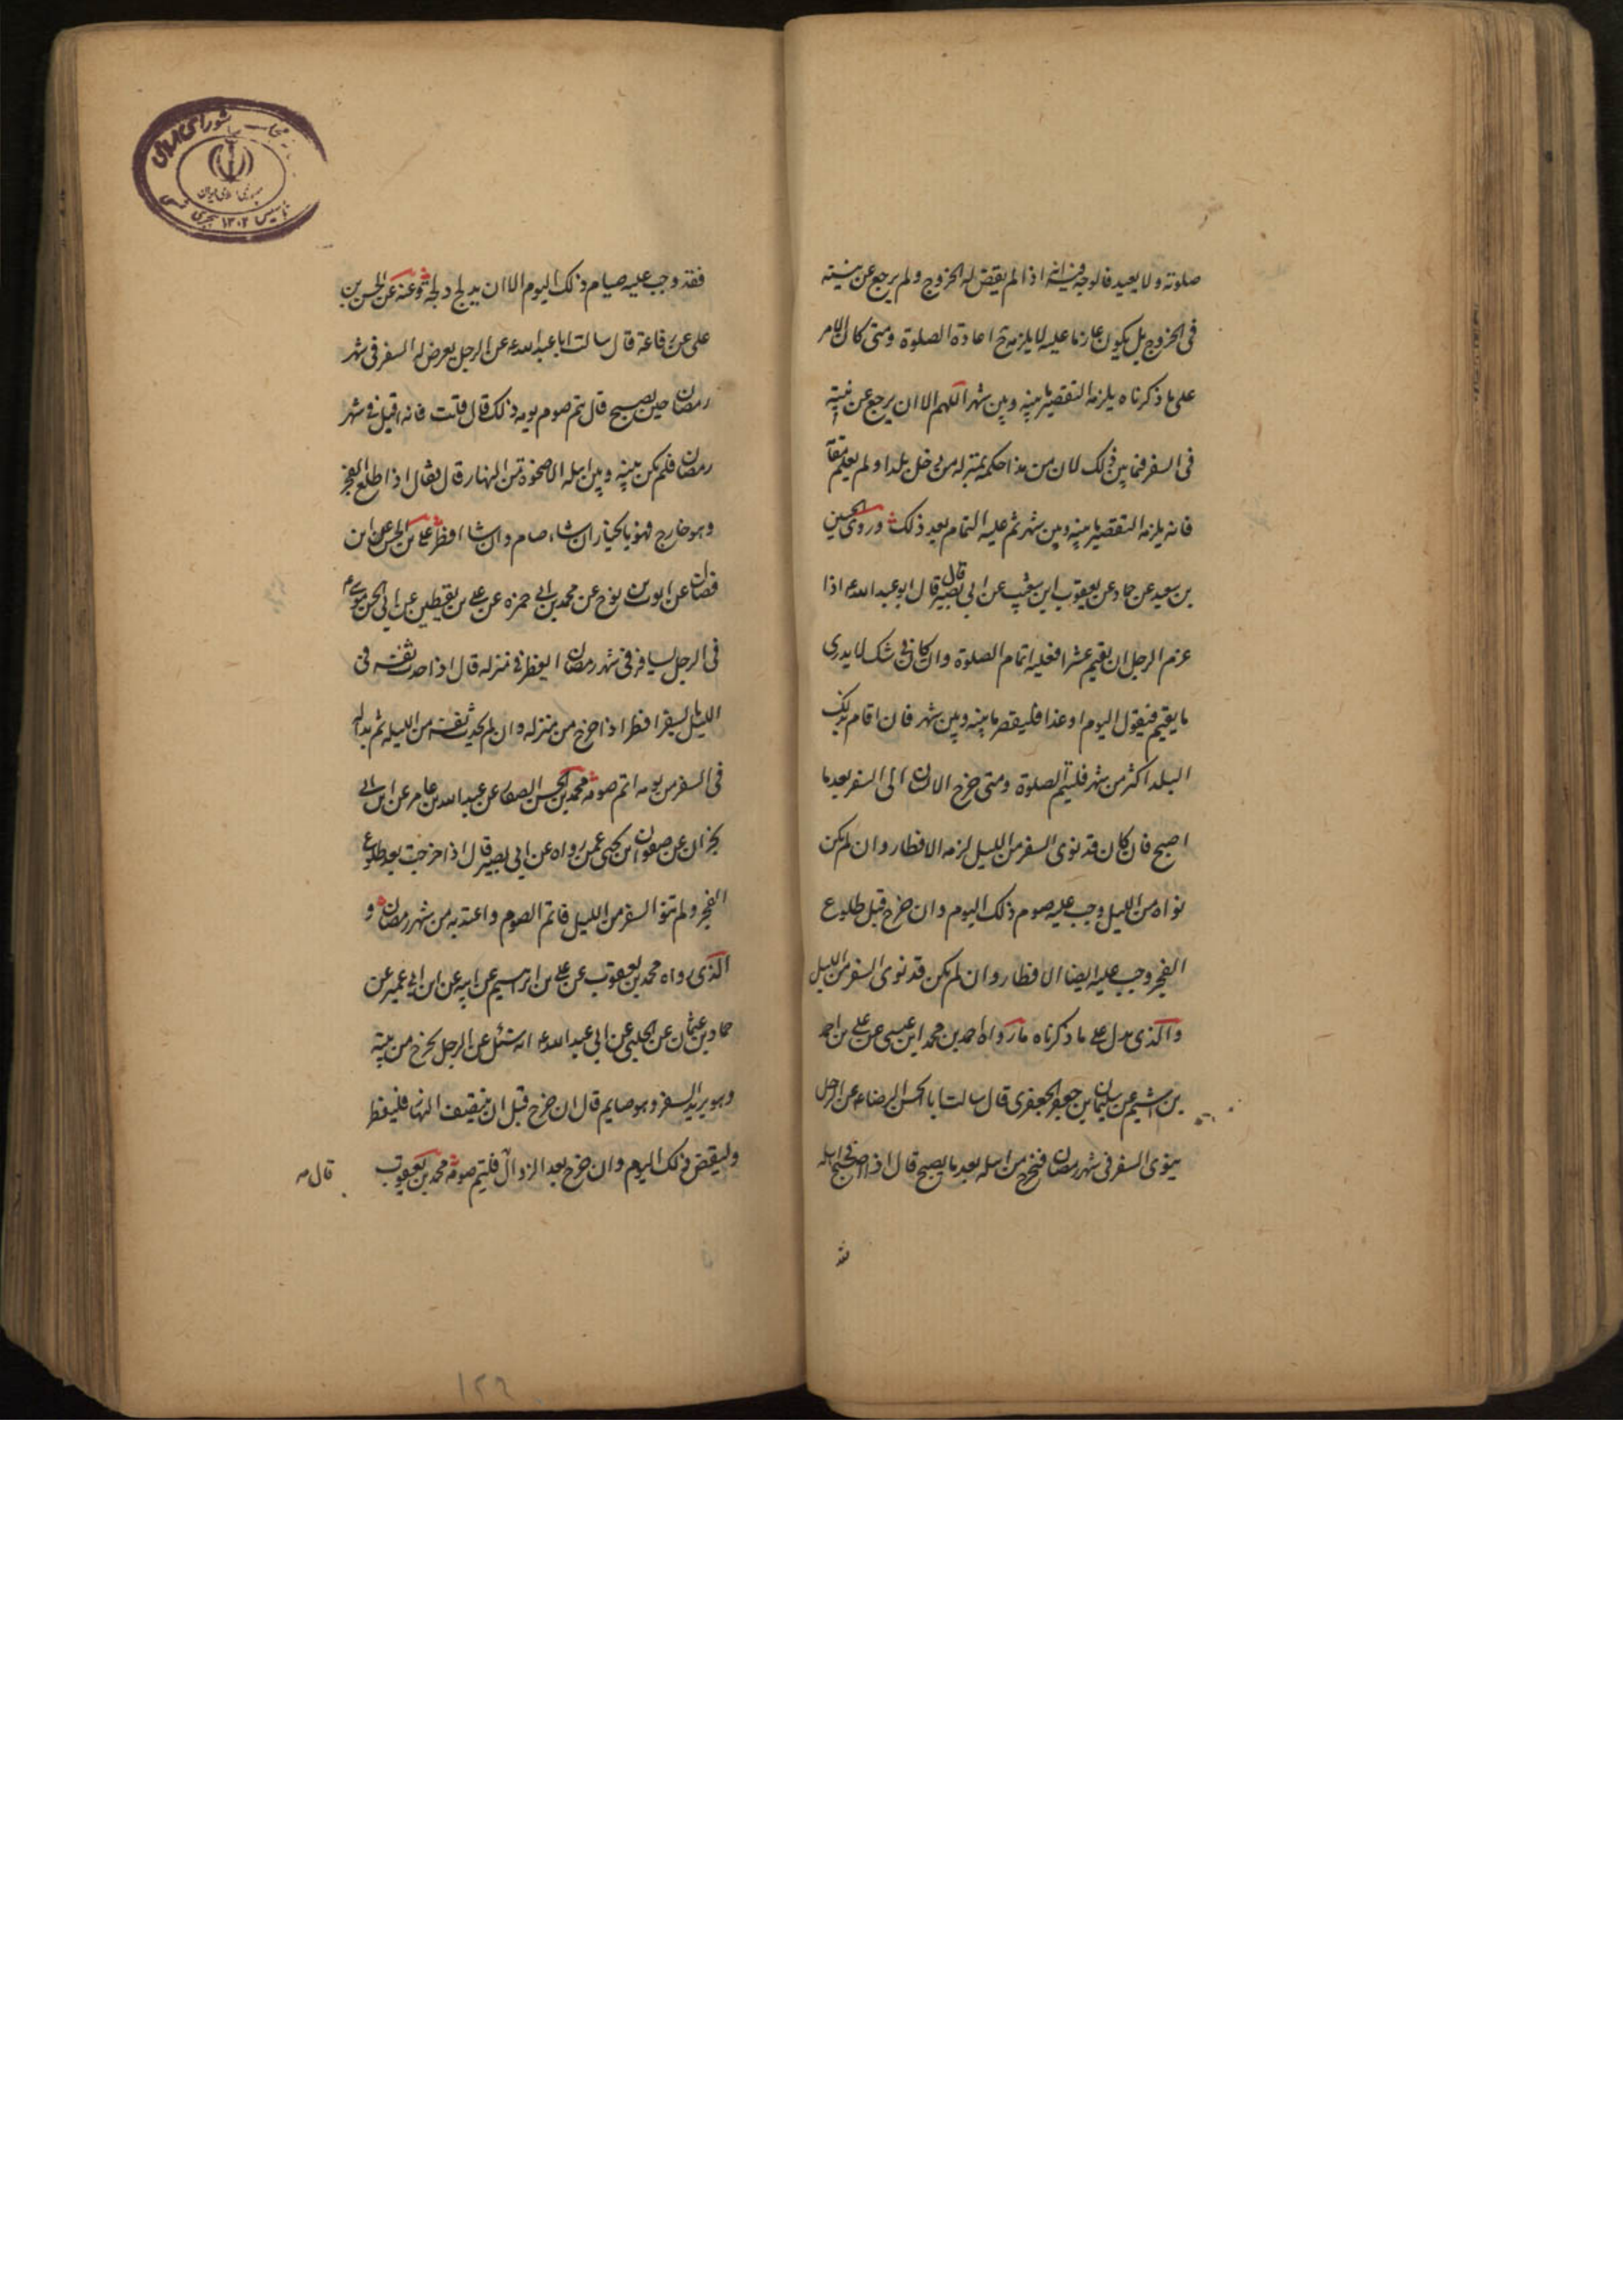 صلوته ولا يعيد فالوجه فيه انه اذا لم يقض له الخروج ولم يرجع عن نيته
فى الخروج بل يكون عازما عليه لا يلزمه ح اعادة الصلوة ومتى كان الامر
على ما ذكرناه يلزمه التقصير ما بينه وبين شهر اللهم الا ان يرجع عن نيته
فى السفر فيما بين ذلك لان من هذا حكمه بمنزلة من دخل بلدا ولم يعلم مقامه
فانه يلزمه التقصير ما بينه وبين شهر ثم عليه التمام بعد ذلك وروى الحسين
بن سعيد عن حماد عن يعقوب ابن شعيب عن ابى بصير قال قال ابو عبد الله ع اذا
عزم الرجل ان يقيم عشرا فعليه اتمام الصلوة وان كان فى شك لا يدرى
ما يقيم فيقول اليوم او غدا فليقصر ما بينه وبين شهر فان اقام بذلك
البلد اكثر من شهر فليتم الصلوة ومتى خرج الانسان الى السفر بعد ما
اصبح فان كان قد نوى السفر من الليل لزمه الافطار وان لم يكن
نواه من الليل وجب عليه صوم ذلك اليوم وان خرج قبل طلوع
الفجر وجب عليه ايضا الافطار وان لم يكن قد نوى السفر من الليل
والذى يدل على ما ذكرناه ما رواه احمد بن محمد ابن عيسى عن على بن احمد
بن اشيم عن سليمان بن جعفر الجعفرى قال سالت ابا الحسن الرضا ع عن الرجل
ينوى السفر فى شهر رمضان فيخرج من اهله بعد ما يصبح قال اذا اصبح فى اهله
فقد وجب عليه صيام ذلك اليوم الا ان يدلج دلجة وعنه عن الحسن بن
على عن رفاعة قال سالت ابا عبد الله ع عن الرجل يعرض له السفر فى شهر
رمضان حين يصبح قال يتم صوم يومه ذلك قال قلت فانه اقبل فى شهر
رمضان فلم يكن بينه وبين اهله الا ضحوة من النهار قال فقال اذا طلع الفجر
وهو خارج فهو بالخيار ان شاء صام وان شاء افطر على بن الحسن على ابن
فضال عن ايوب بن نوح عن محمد بن ابى حمزه عن على بن يقطين عن ابى الحسن موسى ع
فى الرجل يسافر فى شهر رمضان ايفطر فى منزله قال اذا حدث نفسه فى
الليل بالسفر افطر اذا خرج من منزله وان لم يحدث نفسه من الليله ثم بدا له
فى السفر من يومه اتم صومه محمد بن الحسن الصفار عن عبد الله بن عامر عن ابن ابى
نجران عن صفوان ابن يحيى عمن رواه عن ابى بصير قال اذا خرجت بعد طلوع
الفجر ولم تنو السفر من الليل فاتم الصوم واعتد به من شهر رمضان و
الذى رواه محمد بن يعقوب عن على بن ابرهيم عن ابيه عن ابن ابى عمير عن
حماد بن عثمان عن الحلبى عن ابى عبد الله ع انه سئل عن الرجل يخرج من بيته
وهو يريد السفر وهو صايم قال ان خرج قبل ان ينتصف النهار فليفطر
وليقض ذلك اليوم وان خرج بعد الزوال فليتم صومه محمد بن يعقوب
قال
١٢٩